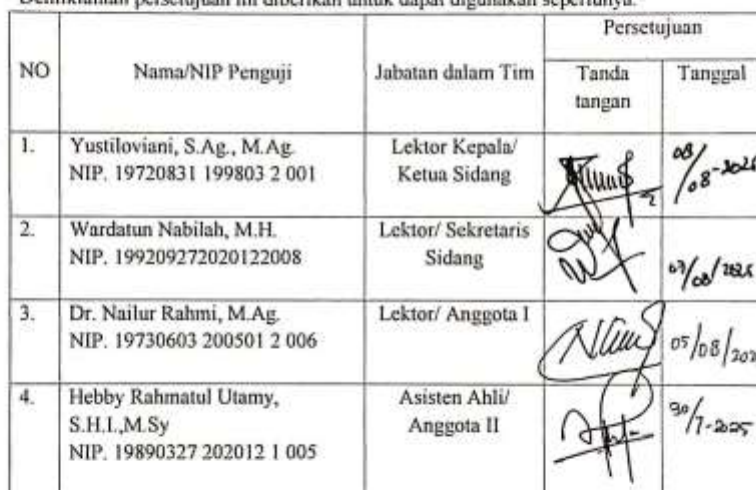 Demikianlah persetujuan ini diberikan untuk dapat digunakan seperlunya.
NO
Nama/NIP Penguji
Jabatan dalam Tim
Persetujuan
Tanda
tangan
Tanggal
1.
Yustiloviani, S.Ag., M.Ag.
NIP. 19720831 199803 2 001
Lektor Kepala/
Ketua Sidang
08/08-2025
2.
Wardatun Nabilah, M.H.
NIP. 199209272020122008
Lektor/ Sekretaris
Sidang
07/08/2025
3.
Dr. Nailur Rahmi, M.Ag.
NIP. 19730603 200501 2 006
Lektor/ Anggota I
05/08/202
4.
Hebby Rahmatul Utamy,
S.H.I.,M.Sy
NIP. 19890327 202012 1 005
Asisten Ahli/
Anggota II
30/7-2025